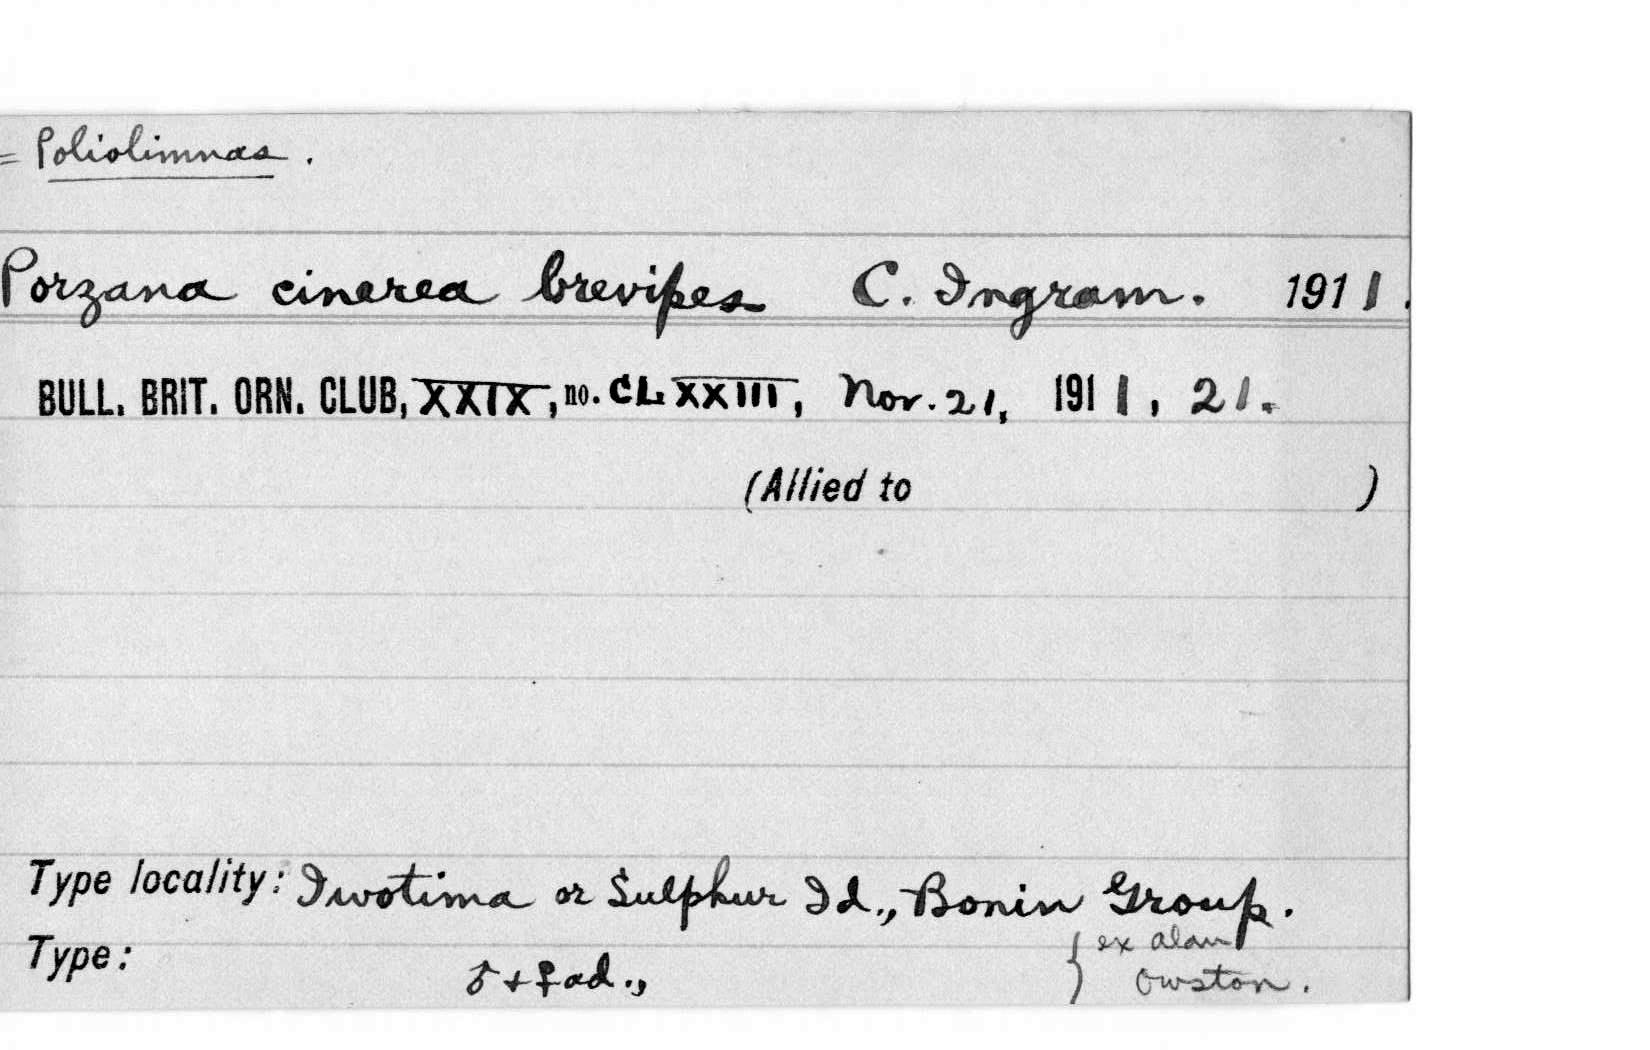 = Poliolimnas.
Porzana cinerea brevipes C. Ingram. 1911.
BULL. BRIT. ORN. CLUB, XXIX, no. CLXXIII, Nov. 21, 1911, 21.
(Allied to )
Type locality: Iwotima or Sulphur Id., Bonin Group.
Type: ♂ + ♀ ad., { ex Alan
Owston.